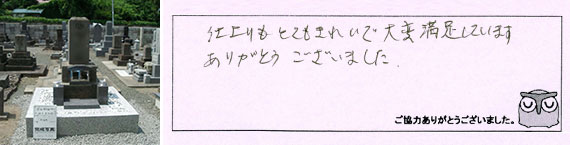 仕上りもとてもきれいで大変満足しています
ありがとうございました.
ご協力ありがとうございました。